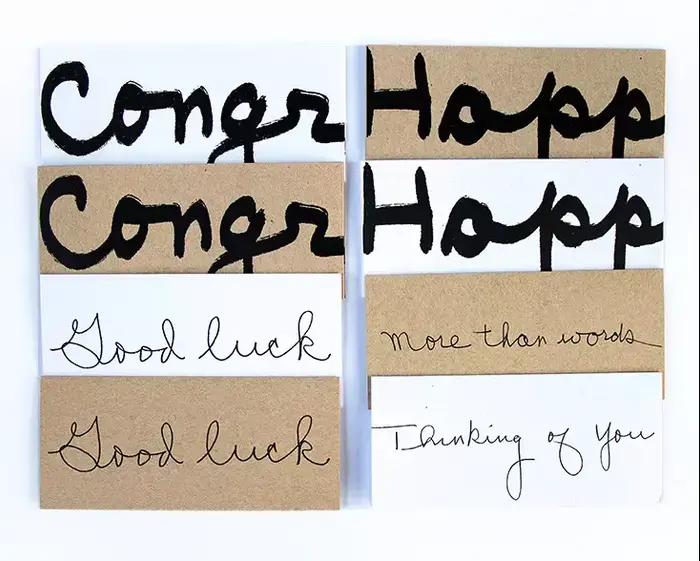 Congr
Congr
Good luck
Good luck
Happ
Happ
more than words
Thinking of you